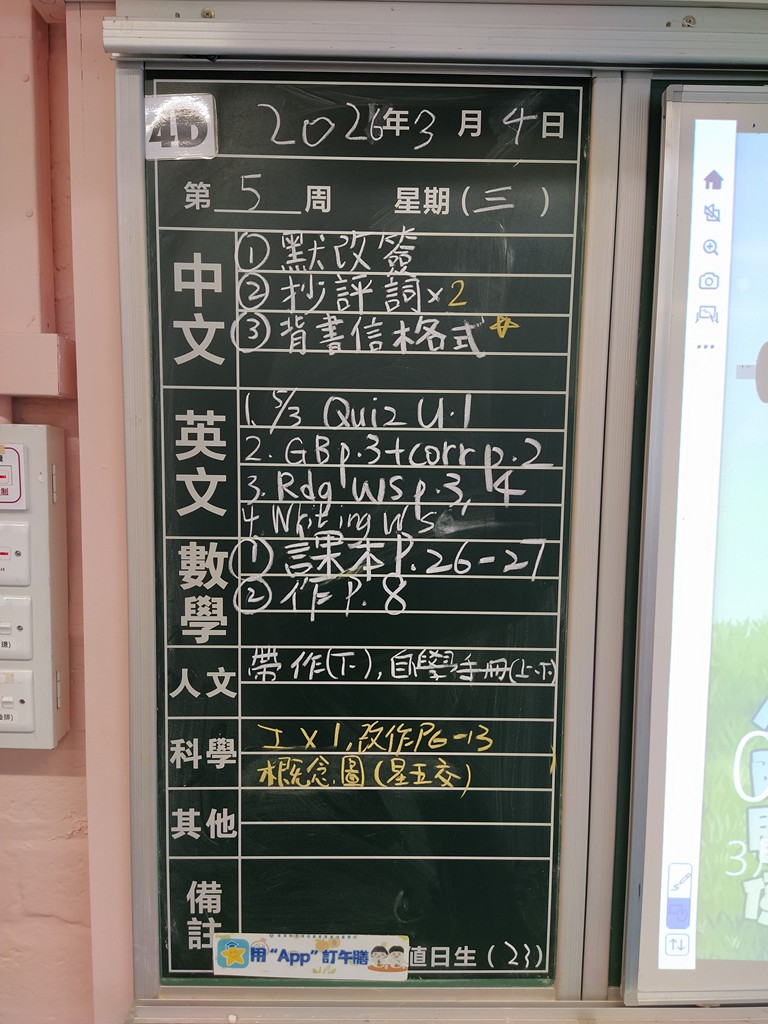 4D
2026年3月4日
第5周 星期(三)
中文
①默改簽
②抄評詞×2
③背書信格式☆
英文
1. 5/3 Quiz U.1
2. GB p.3+corr p.2
3. Rdg WS p.3, 4
4. Writing WS
數學
①課本P.26-27
②作P.8
人文
帶作(下),自學手冊(上、下)
科學
工X1,改作P6-13
概念圖(星五交)
其他
備註
用“App”訂午膳
值日生(23)
3